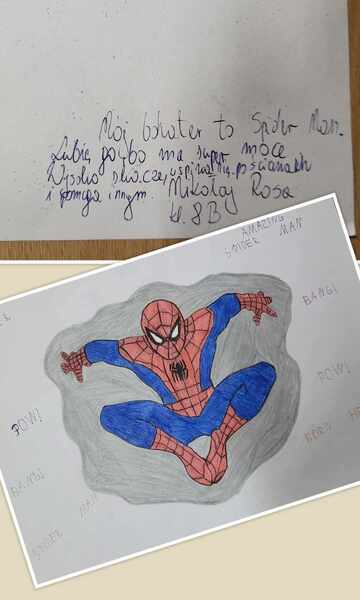 Mój bohater to Spider Man.
Lubię go, bo ma super moce
Wysoko skacze, wspina się po ścianach
i pomaga innym. Mikołaj Rosa
kl. 8B
AMAZING
SPIDER MAN
BANG!
POW!
POW!
BANG!
SPIDER MAN